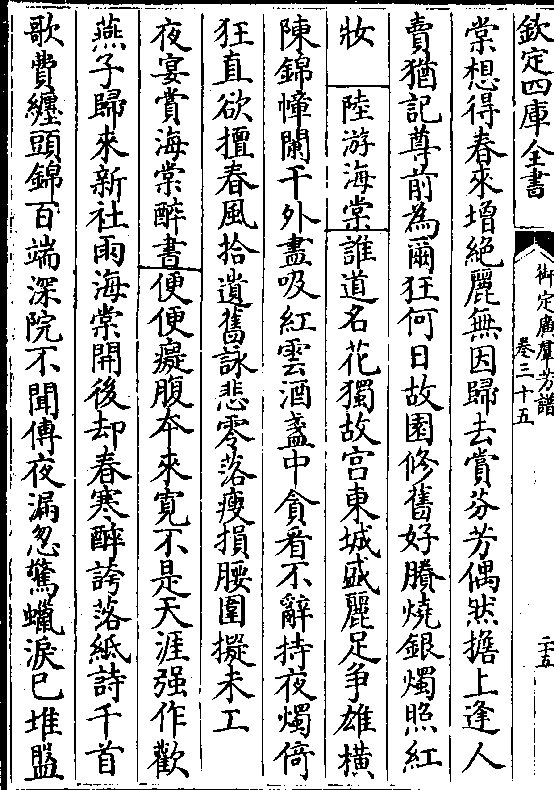 欽定四庫全書
御定廣羣芳譜
卷三十五
二十五
棠想得春來增絕麗無因歸去賞芬芳偶然擔上逢人
賣猶記尊前為爾狂何日故園修舊好賸燒銀燭照紅
妝
陸游海棠
誰道名花獨故宫東城盛麗足爭雄橫
陳錦幛闌干外盡吸紅雲酒盞中貪看不辭持夜燭倚
狂直欲擅春風拾遺舊詠悲零落瘦損腰圍擬未工
夜宴賞海棠醉書
便便癡腹本來寛不是天涯强作歡
燕子歸來新社雨海棠開後却春寒醉誇落紙詩千首
歌費纏頭錦百端深院不聞傳夜漏忽驚蠟淚已堆盤